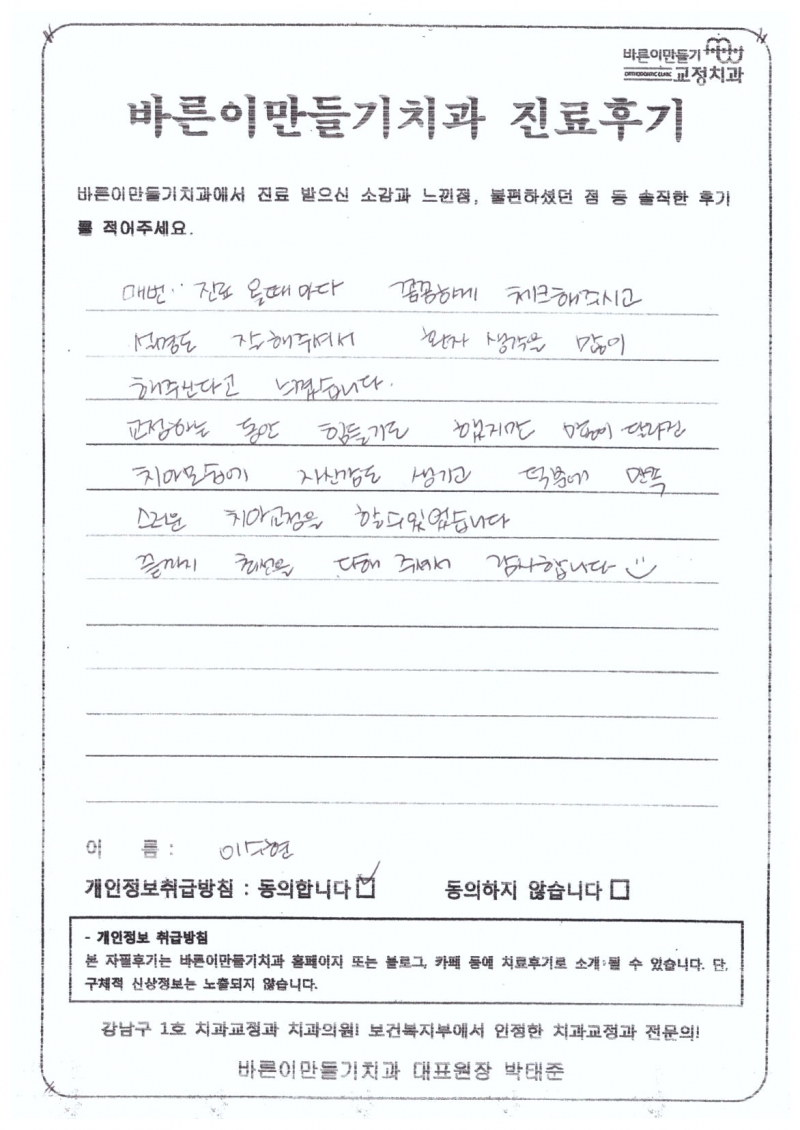 바른이만들기
ORTHODONTIC CLINIC 교정치과
바른이만들기치과 진료후기
바른이만들기치과에서 진료 받으신 소감과 느낀점, 불편하셨던 점 등 솔직한 후기
를 적어주세요.
매번 진료 올때마다 꼼꼼하게 체크해주시고
설명도 잘해주셔서 환자 생각을 많이
해주신다고 느꼈습니다.
교정하는 동안 힘들기도 했지만 많이 달라진
치아모양에 자신감도 생기고 덕분에 만족
스러운 치아교정을 할 수 있었습니다
끝까지 최선을 다해 주셔서 감사합니다
이 름 : 이수현
개인정보취급방침 : 동의합니다 동의하지 않습니다
- 개인정보 취급방침
본 자필후기는 바른이만들기치과 홈페이지 또는 블로그, 카페 등에 치료후기로 소개 될 수 있습니다. 단,
구체적 신상정보는 노출되지 않습니다.
강남구 1호 치과교정과 치과의원! 보건복지부에서 인정한 치과교정과 전문의!
바른이만들기치과 대표원장 박태준